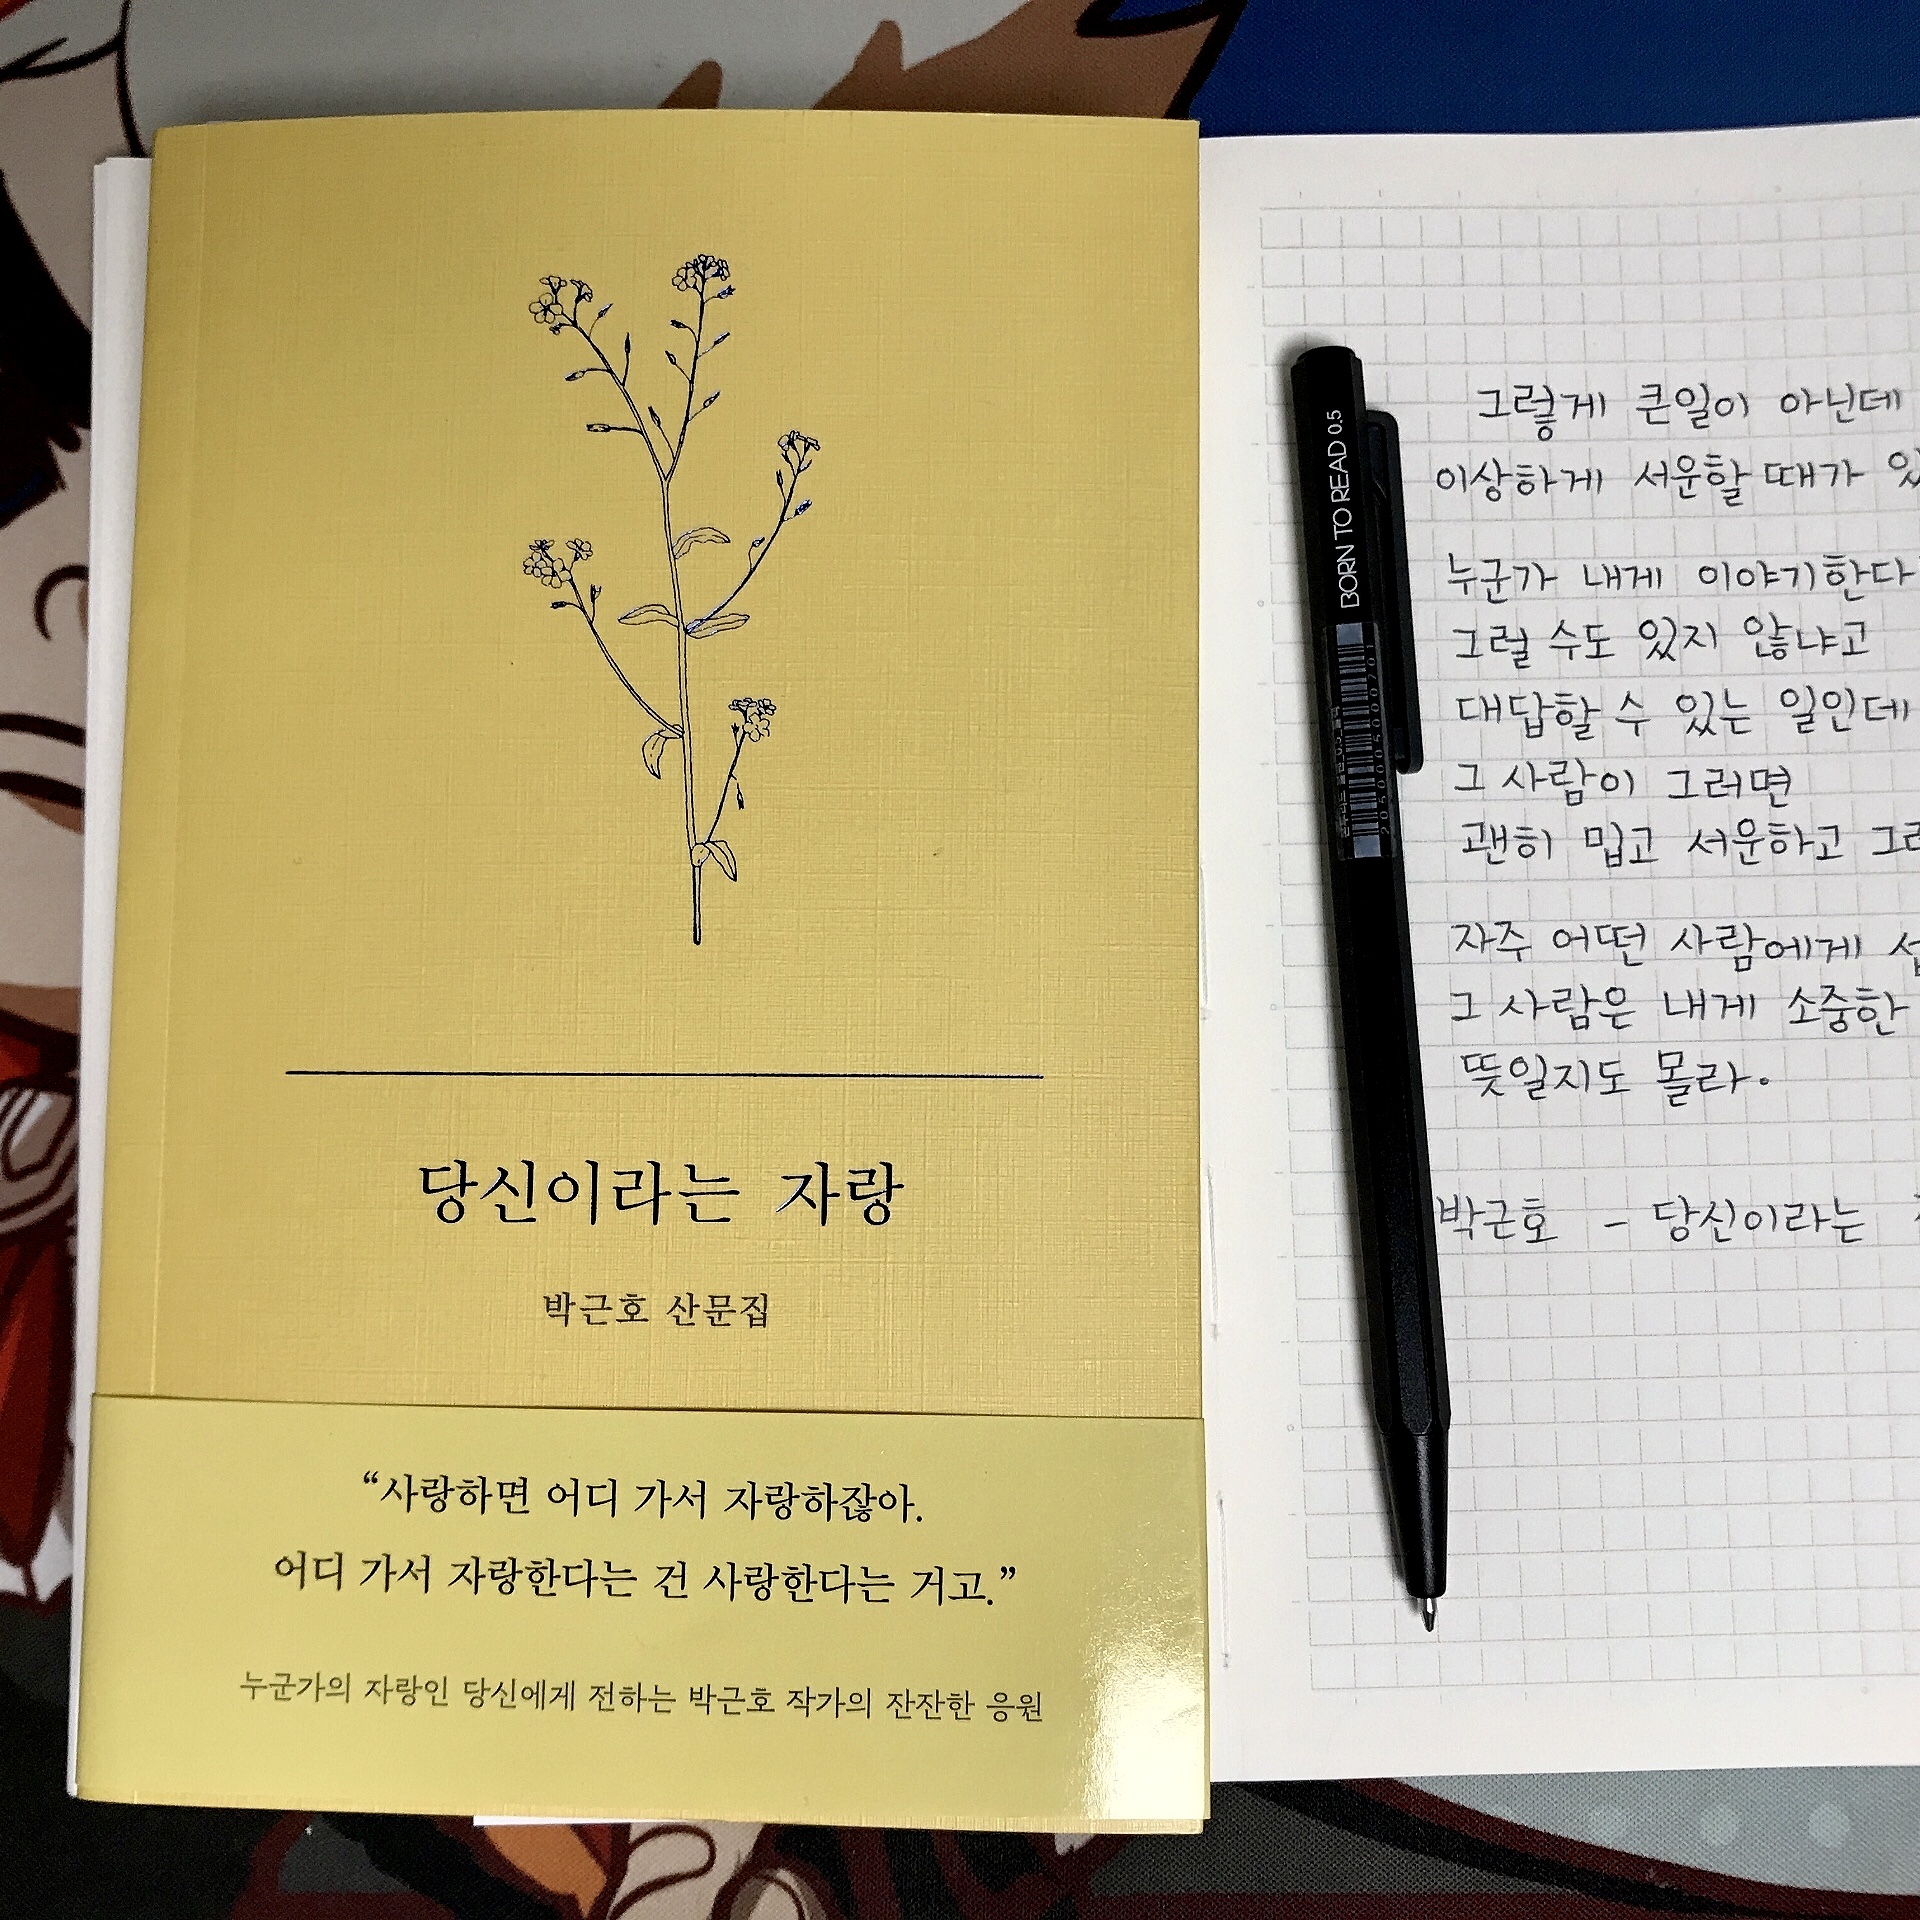 당신이라는 자랑
박근호 산문집
“사랑하면 어디 가서 자랑하잖아.
어디 가서 자랑한다는 건 사랑한다는 거고.”
누군가의 자랑인 당신에게 전하는 박근호 작가의 잔잔한 응원
BORN TO READ 0.5
2050005000701
그렇게 큰일이 아닌데
이상하게 서운할 때가
누군가 내게 이야기한다
그럴 수도 있지 않냐고
대답할 수 있는 일인데
그 사람이 그러면
괜히 밉고 서운하고
자주 어떤 사람에게
그 사람은 내게 소중한
뜻일지도 몰라.
박근호 - 당신이라는